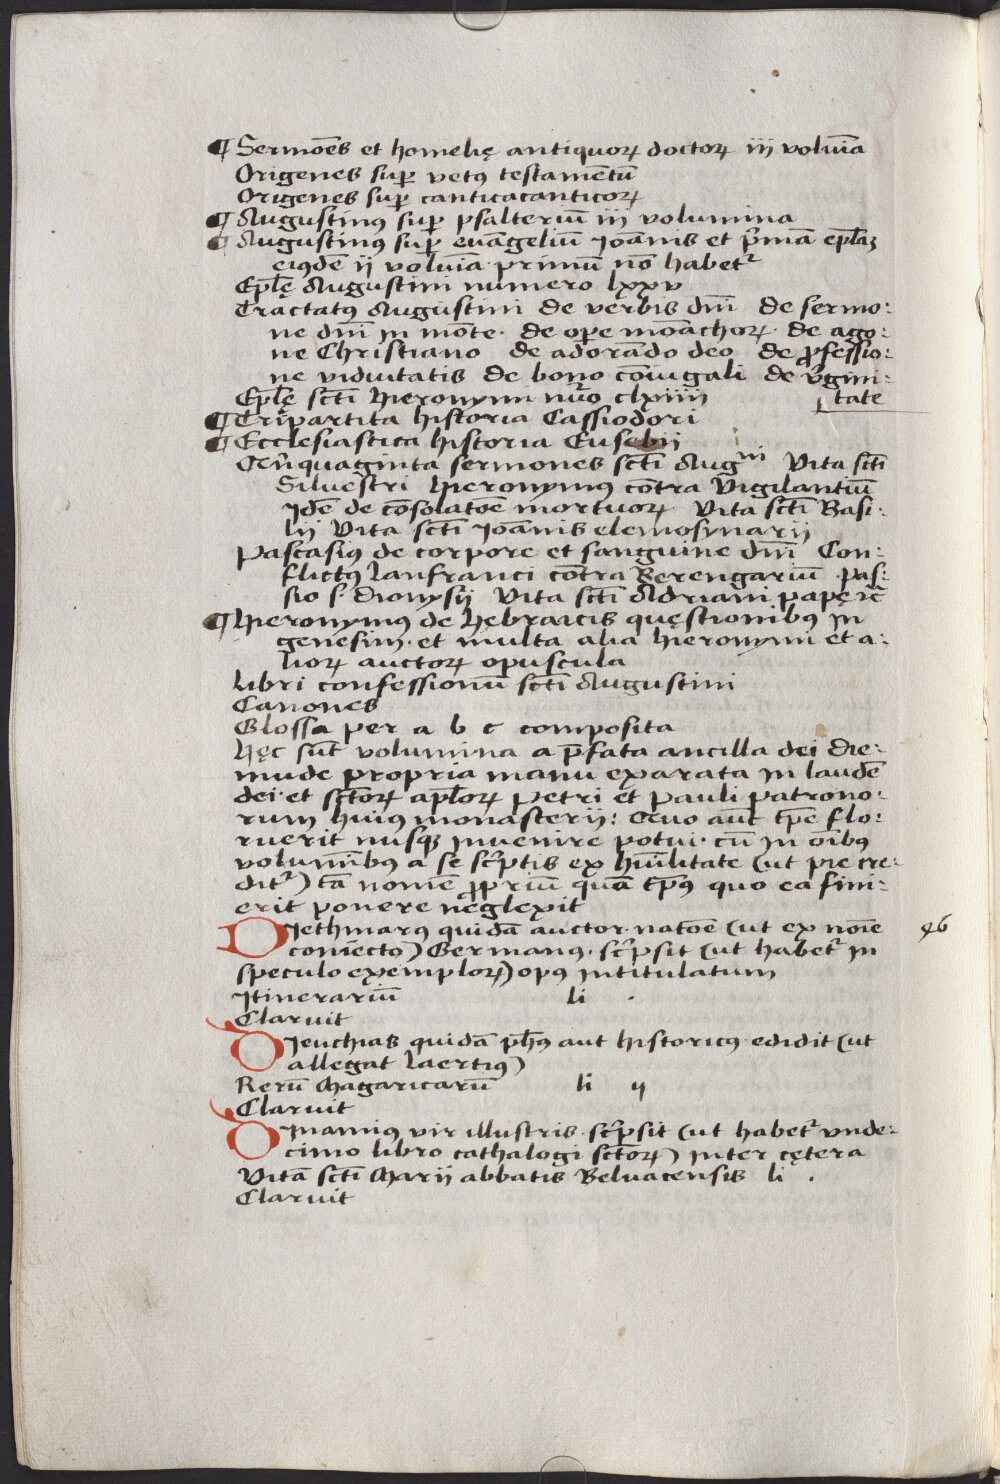 ¶ Sermōes et homelię antiquoꝝ doctoꝝ iij volūīa
Origenes sup̄ vetꝰ testamētū
Origenes sup̄ canticacanticoꝝ
¶ Augustinꝰ sup̄ psalteriū iij volumina
¶ Augustinꝰ sup̄ euāgeliū Joānis et p̄mā ep̄laȝ
eiꝰdē ij volūīa primū nō habet᷑
Ep̄lę Augustini numero lxxv
Tractatꝰ Augustini de verbis dn̄i de sermo:
ne dn̄i in mōte. de ope moāchoꝝ. de ago:
ne Christiano de adorādo deo de ꝓfessio:
ne viduitatis de bono cōiugali de v̓gini:
tate
Ep̄lę sctī Hieronymi nūo clxiiij
¶ Tripartita historia Cassiodori
¶ Ecclesiastica historia Eusebij
Qn̄quaginta sermones sctī Augni Vita sctī
Siluestri Hieronymꝰ cōtra Vigilantiū
Jdē de cōsolatōe mortuoꝝ Vita sctī Basi:
lij Vita sctī Joānis elemosynarij
Pascasiꝰ de corpore et sanguine dn̄i Con:
flictꝰ Lanfranci cōtra Berengariū Pas:
sio s. Dionysij Vita sctī Adriani papę ꝛc̄
¶ Hieronymꝰ de Hebraicis quęstionibꝰ in
genesim. et multa alia Hieronymi et a:
lioꝝ auctoꝝ opuscula
Libri confessionū sctī Augustini
Canones
Glossa per a b c composita
Hęc sūt volumina a p̄fata ancilla dei die:
mude propria manu exarata in laudē
dei et sctōꝝ apl̄oꝝ Petri et Pauli patrono:
rum huius monasterij: Quo aūt tp̄e flo:
ruerit nusq̄ȝ inuenire potui. cū in oībꝰ
volumībꝰ a se sc̓ptis ex hūilitate (ut pie cre:
dit᷑) tā nomē ꝓpriū quā tp̄ꝰ quo ea fini:
erit ponere neglexit
Diethmarꝰ quidā auctor. natōe (ut ex noīe 96
coniecto) Germanꝰ. sc̓psit (ut habet᷑ in
speculo exemploꝝ) opꝰ intitulatum
Jtinerariū li .
Claruit
Dieuchias quidā ph̄ꝰ aut historicꝰ edidit (ut
allegat Laertiꝰ)
Rerū Magaricarū li ij
Claruit
Dinamiꝰ vir illustris. sc̓psit (ut habet᷑ vnde:
cimo libro cathalogi sctōꝝ) inter cętera
Vitā sctī Marij abbatis Beluacensis li .
Claruit